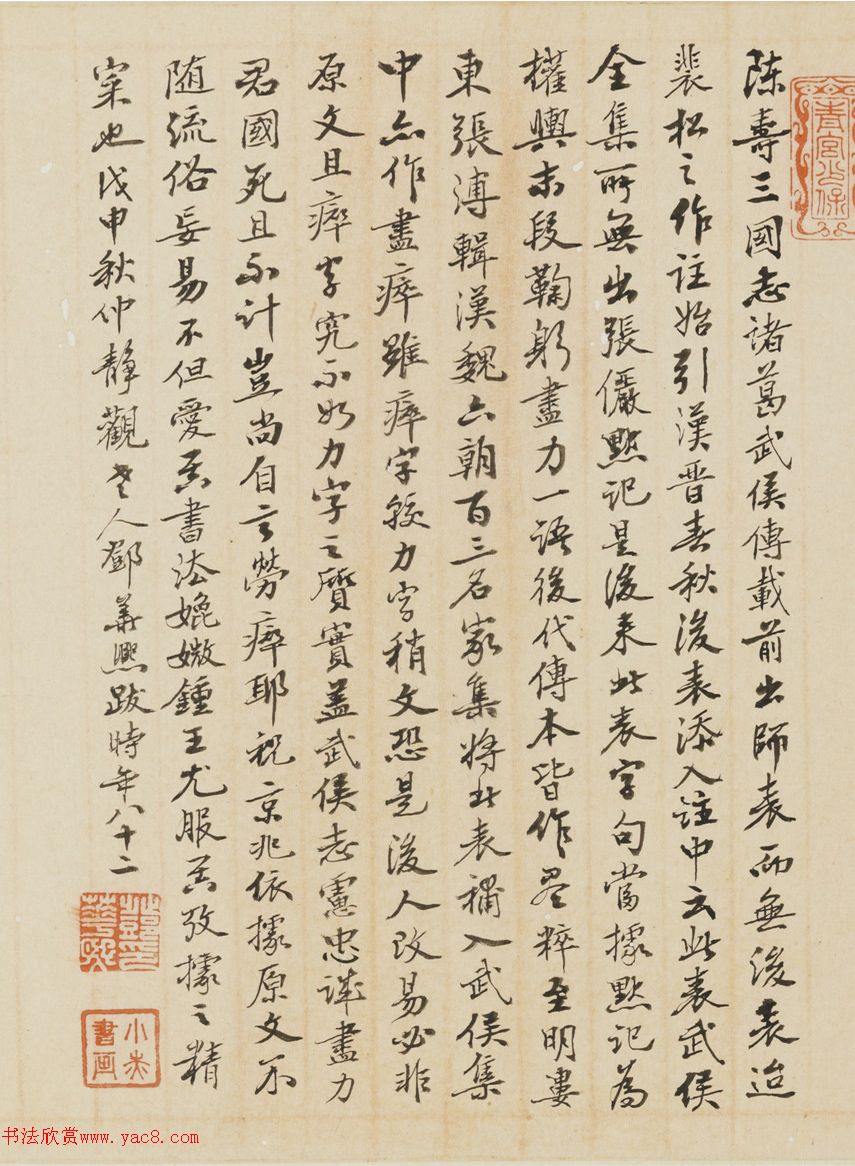 陈壽三國志諸葛武侯傳載前出師表而無後表迨
裴松之作註始引漢晋春秋後表添入註中云此表武侯
全集所無出張儼默記是後来此表字句當據默記為
權輿末段鞠躬盡力一語後代傳本皆作盡粹至明婁
東張溥輯漢魏六朝百三名家集將此表補入武侯集
中亦作盡瘁雖瘁字較力字稍文恐是後人改易必非
原文且瘁字究不如力字之質實蓋武侯志慮忠誠盡力
君國死且不計豈尚自言勞瘁耶祝京兆依據原文不
随流俗妄易不但愛其書法媲媺鍾王尤服其攷據之精
宷也戊申秋仲静觀老人鄧華熙跋時年八十二
青宫少保
鄧印華熙
小赤書画
书法欣赏www.yac8.com